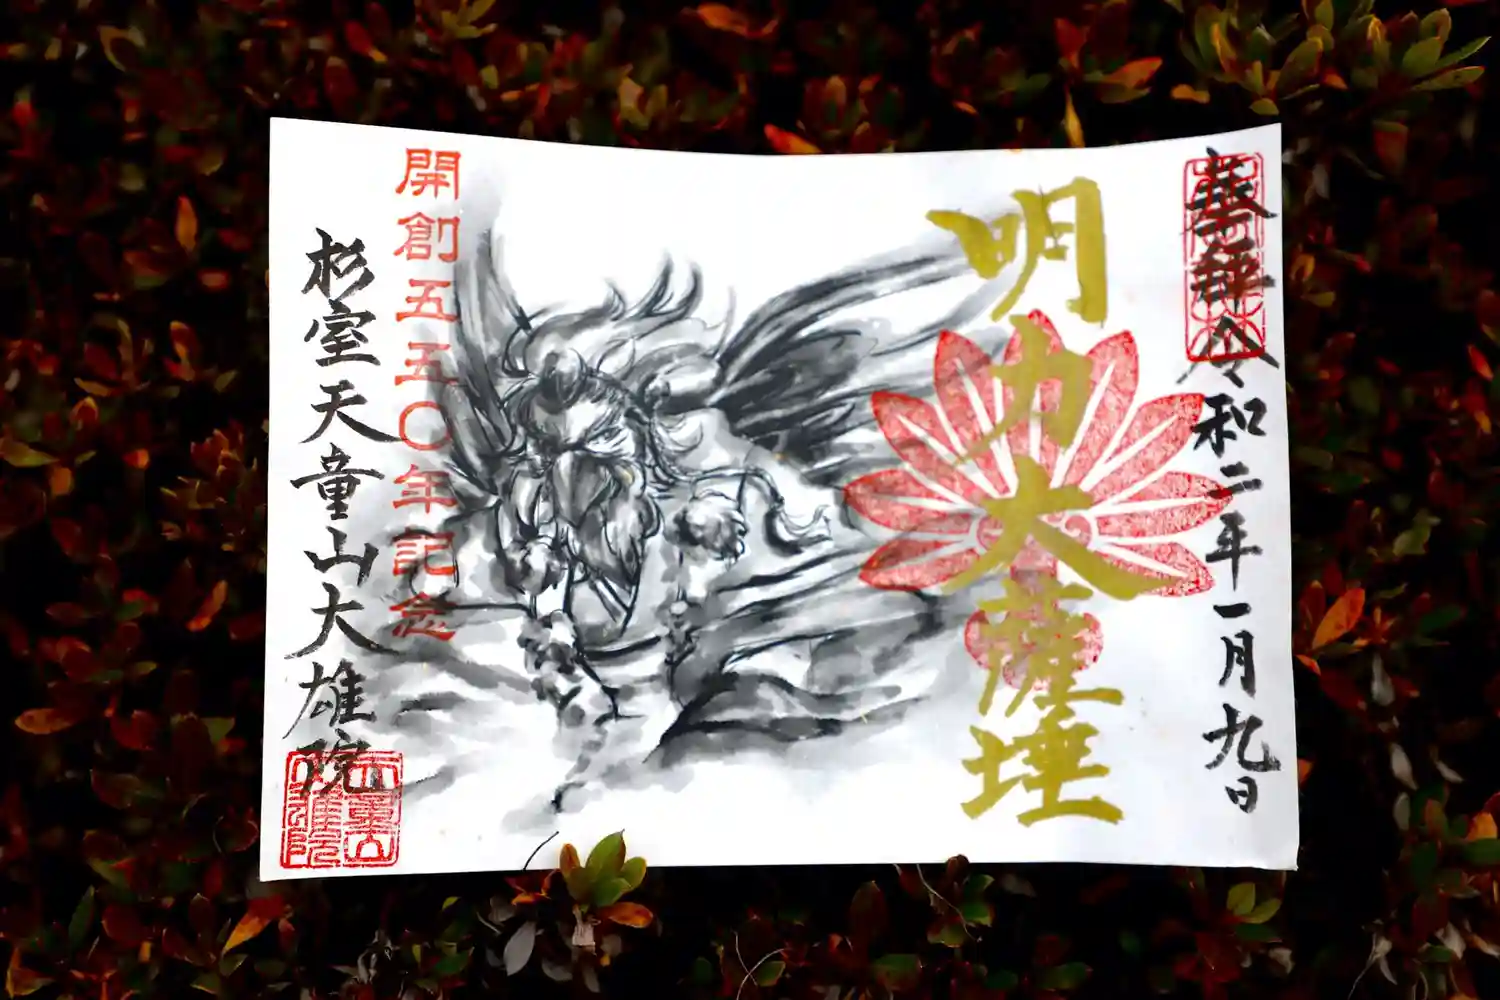 奉拝 令和二年一月九日
明力大薩埵
開創五五〇年記念
杉室天童山大雄院